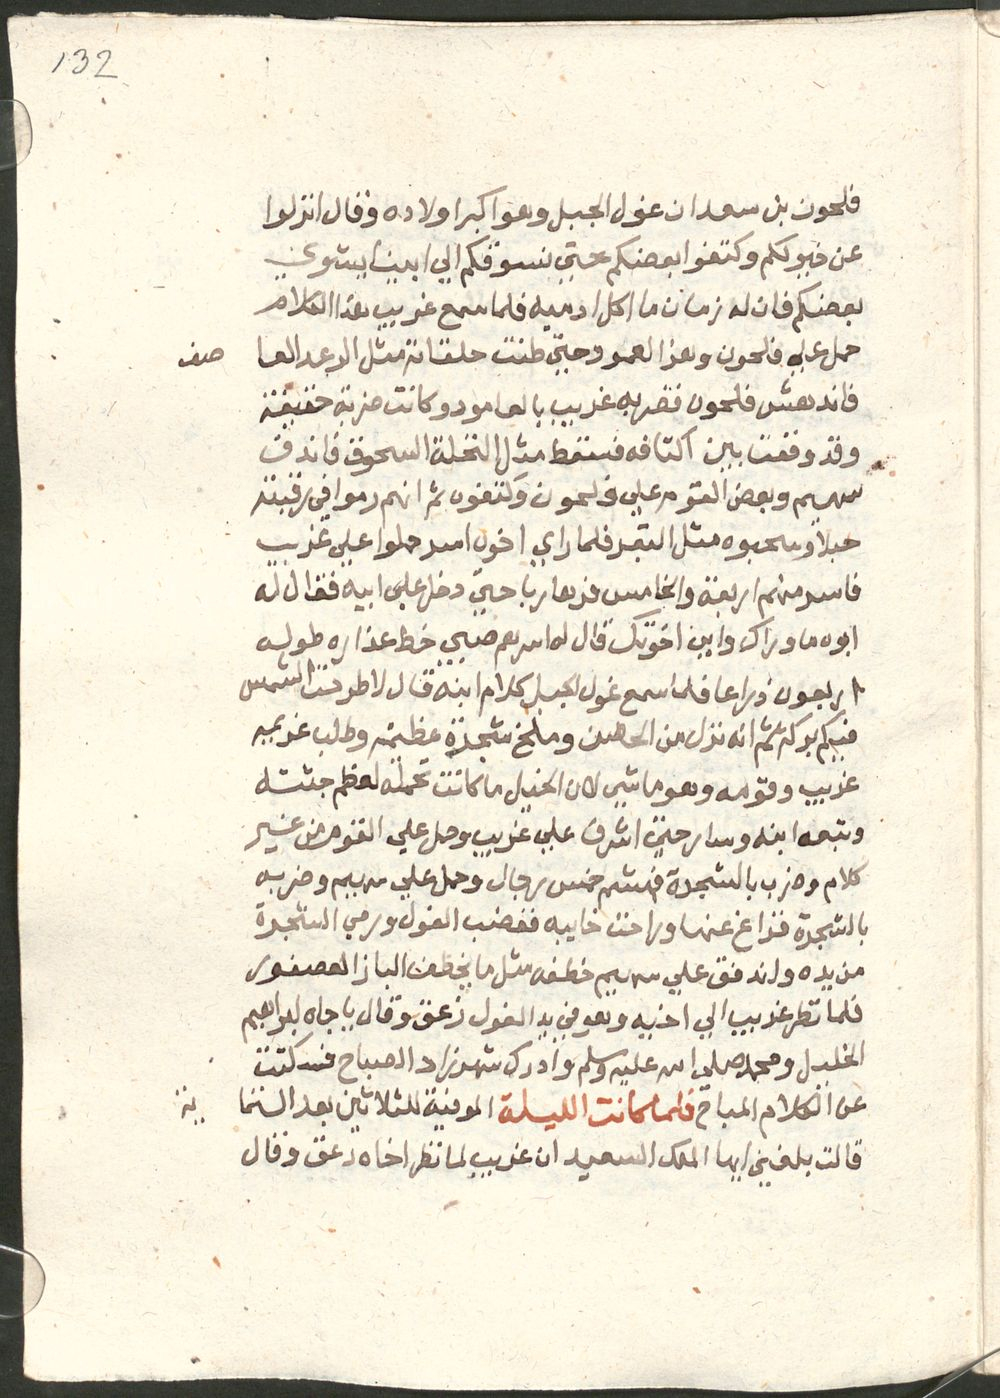 132
فلحون بن سعدان غول الجبل وهو اكبر اولاده وقال انزلوا
عن خيولكم وكتفوا بعضكم حتي نسوقكم الي ابينا يشوي
بعضكم فان له زمان ما اكل ادميه فلما سمع غريب هذا الكلام
حمل علي فلحون وهز العمود حتي طنت حلقاته مثل الرعد العا صف
فاندهش فلحون فضربه غريب بالعامود وكانت ضربة خفيفة
وقد وقعت بين اكتافه فسقط مثل النخلة السحوق فاندفق
سهيم وبعض القوم علي فلحون وكتفوه ثم انهم رموا في رقبته
حبلا وسحبوه مثل البقر فلما راي اخوه اسر حملوا علي غريب
فاسر منهم اربعة والخامس فر هاربا حتي دخل علي ابيه فقال له
ابوه ما وراك واين اخوتك قال له اسرهم صبي خط عذاره طوله
اربعون ذراعا فلما سمع غول الجبل كلام ابنه قال لا طرحت الشمس
فيكم بركة ثم انه نزل من الحصن وملخ شجرة عظيمة وطلب غريمه
غريب وقومه وهو ماشي لان الخيل ما كانت تحمله لعظم جثته
وتبعه ابنه وسار حتي اشرف علي غريب وحمل علي القوم من غير
كلام وضرب بالشجرة فهشم خمس رجال وحمل علي سهيم وضربه
بالشجرة فزاغ عنها وراحت خايبه فغضب الغول ورمي الشجرة
من يده واندفق علي سهيم خطفه مثل ما يخطف الباز العصفور
فلما نظر غريب الي اخيه وهو في يد الغول زعق وقال يا جاه ابراهيم
الخليل ومحمد صلي الله عليه وسلم وادرك شهرزاد الصباح فسكتت
عن الكلام المباح فلما كانت الليلة الموفية للثلاثين بعد الستما ية
قالت بلغني ايها الملك السعيد ان غريب لما نظر اخاه زعق وقال